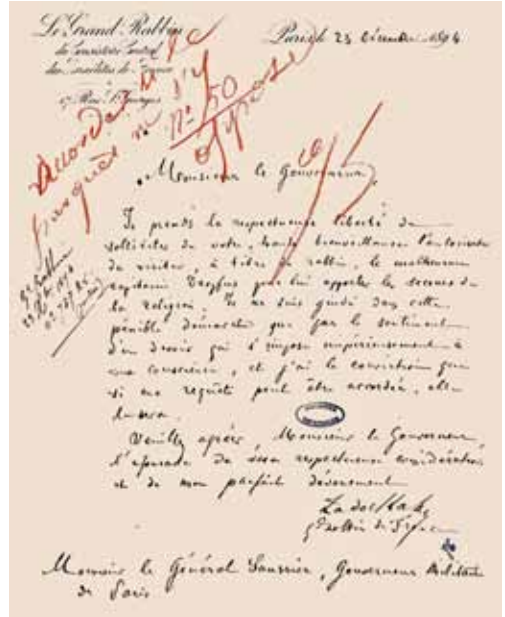 Le Grand Rabbin
du Consistoire Central
des Israélites de France
17, Rue St Georges
Paris le 23 Décembre 1894
Accorder
si
rien ne s'y
oppose
N° 50
Monsieur le Gouverneur,
Je prends la respectueuse liberté de
solliciter de votre haute bienveillance l'autorisation
de visiter, à titre de rabbin, le malheureux
capitaine Dreyfus pour lui apporter les secours de
la religion. Je ne suis guidé dans cette
pénible démarche que par le sentiment
d'un devoir qui s'impose impérieusement à
ma conscience, et j'ai la conviction que
si ma requête peut être accordée, elle
le sera.
Veuillez agréer, Monsieur le Gouverneur,
l'assurance de ma respectueuse considération
et de mon parfait dévouement
Zadoc Kahn
gd rabbin de France
Monsieur le Général Saussier, Gouverneur Militaire
de Paris